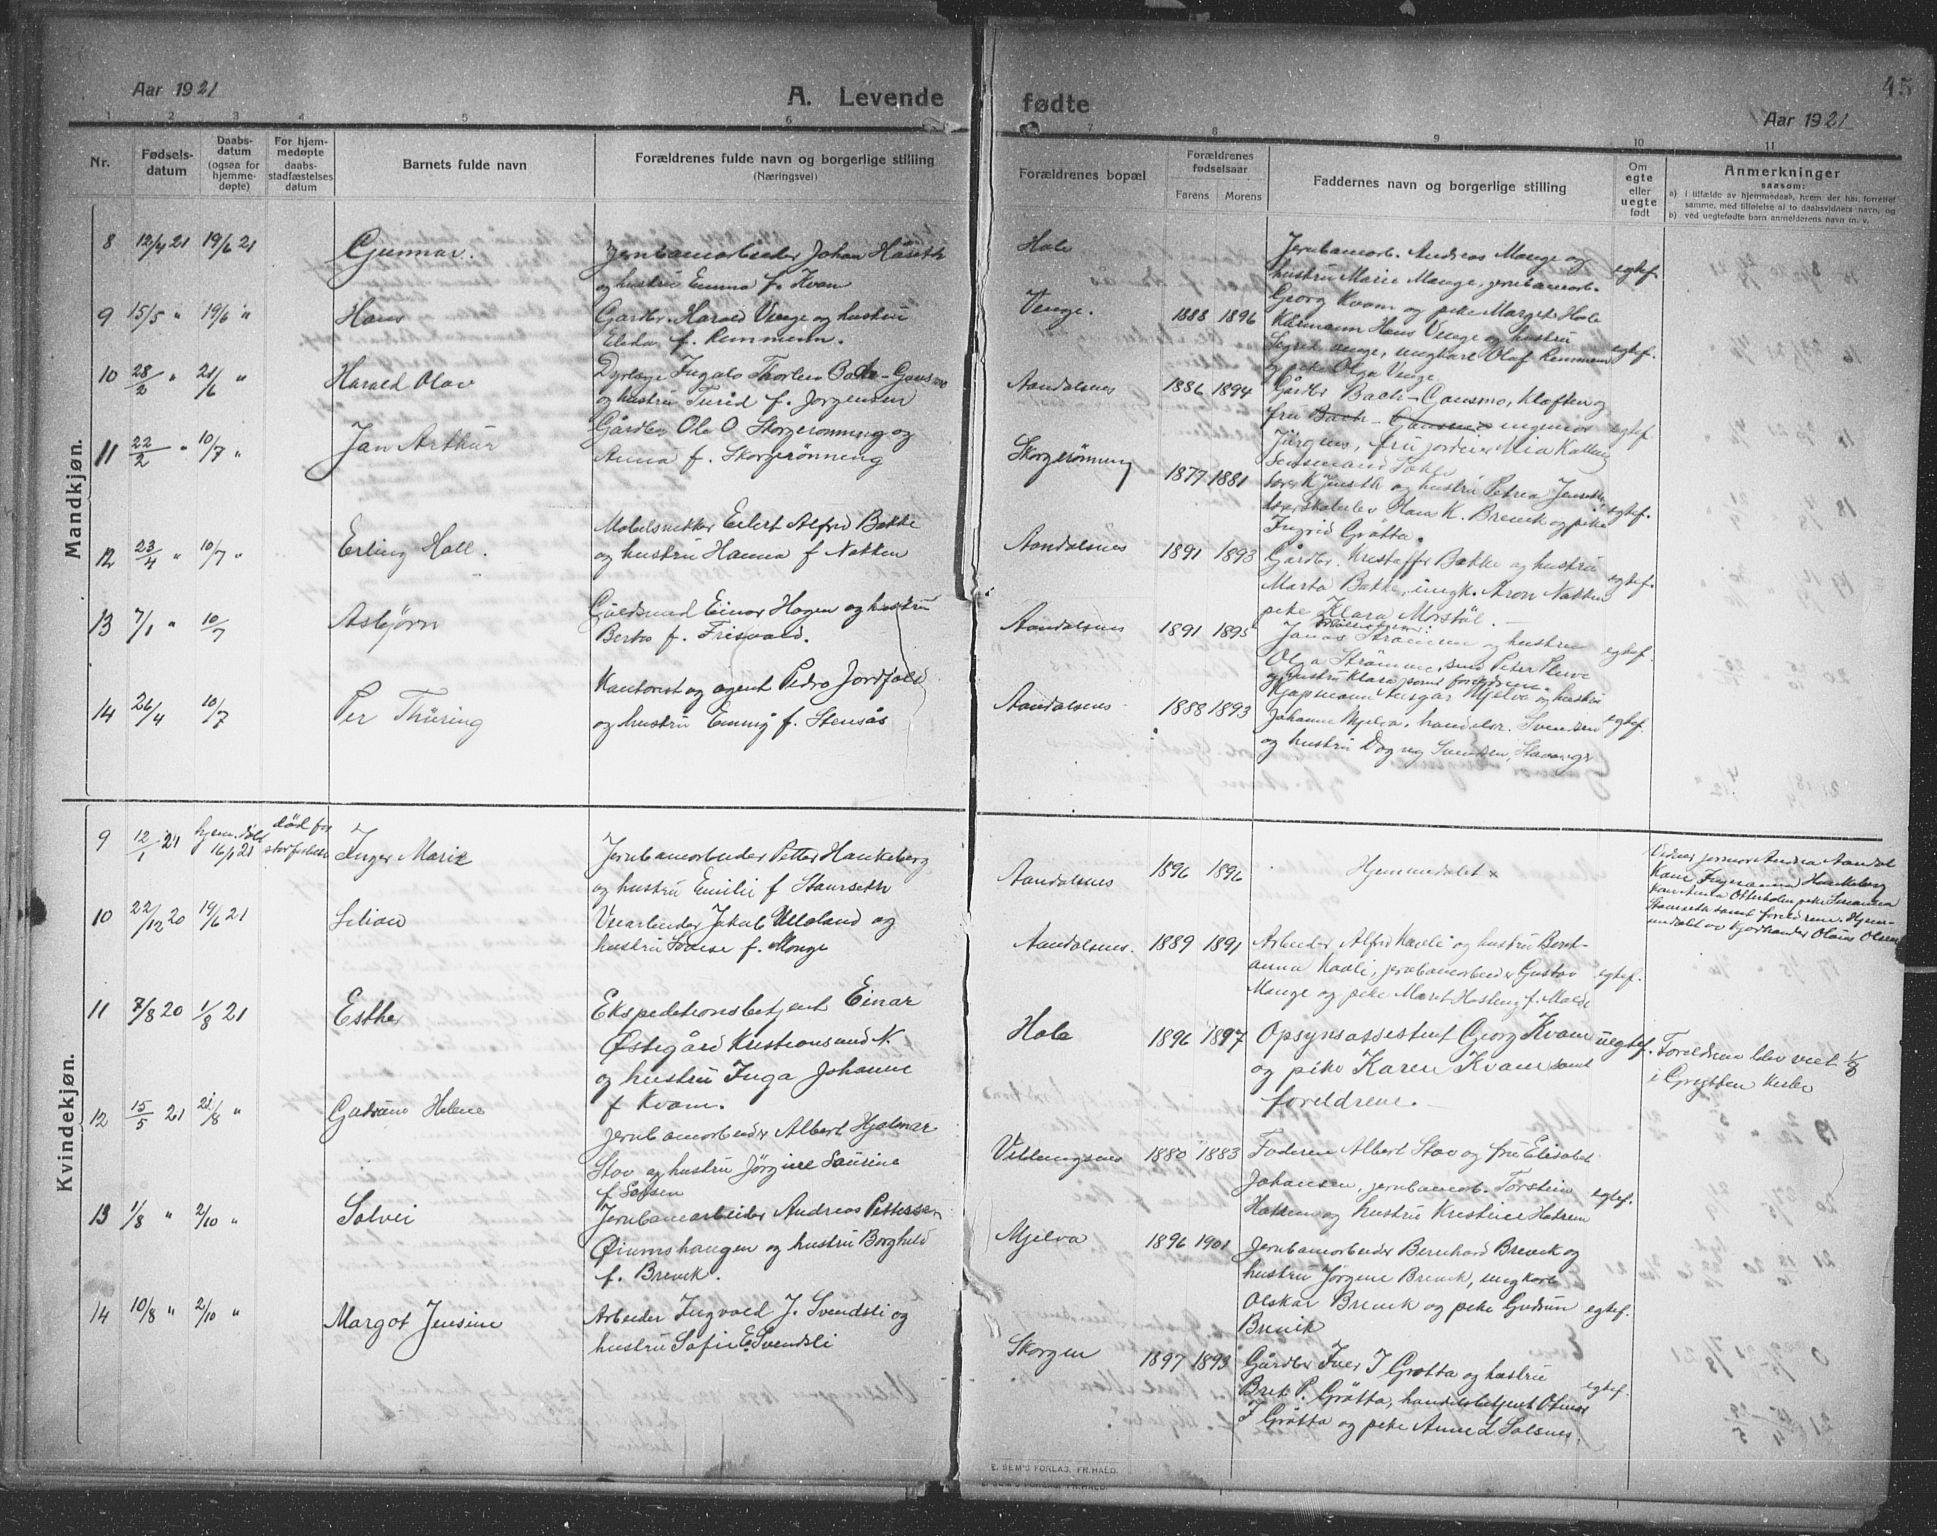 Aar 1921
A. Levende
fødte
Aar 1921
45
1 2 3 4 5 6 7 8 9 10 11
Nr.
Fødsels-
datum
Daabs-
datum
(ogsaa for
hjemme-
døpte)
For hjem-
medøpte
daabs-
stadfæstelses
datum
Barnets fulde navn
Forældrenes fulde navn og borgerlige stilling
(Næringsvei)
Forældrenes bopæl
Forældrenes
fødselsaar
Farens Morens
Faddernes navn og borgerlige stilling
Om
egte
eller
uegte
født
Anmerkninger
saasom:
a) i tilfælde av hjemmedaab, hvem der har forrettet
samme, med tilføielse af to daabsvidners navn, og
b) ved uegtefødte barn anmelderens navn m. v.
Mandkjøn.
8 12/4 21 19/6 21
Gunnar.
Jernbanearbeider Johan Haseth
og hustru Emma f. Kvam
Hole
Jernbanearb. Andreas Monge og
hustru Marie Monge, jernbanearb.
Georg Kvam og pike Margit Hole
egtef.
9 15/5 " 19/6 "
Hans
Gårdbr. Harald Venge og hustru
f. Remmem.
Venge.
1888 1896
Hans Venge og hustru
Sigrid Venge, ungkarl Olaf Remmem
og pike Olga Venge
egtef.
10 28/2 " 21/6 "
Harald Olav
Dyrlæge Ingals Thorleiv Bach-Gansmo
og hustru Turid f. Jørgensen
Aandalsnes
1886 1894
Gårdbr. Bach-Gansmo, Kløften og
fru Bach-Gansmo ingeniør
Jürgens, fru jordeier Mia Kalling
egtef.
11 22/2 " 10/7 "
Jan Arthur
Gårdbr. Ole O. Skorgerønning og
Anna f. Skorgerønning
Skorgerønning
1877 1881
og hustru Petrea Jenseth
Olava K. Brevik og pike
Ingrid Grøtta.
egtef.
12 23/4 " 10/7 "
Erling Hall.
Møbelsnekker Eilert Alfred Bakke
og hustru Hanna f Nakken
Aandalsnes
1891 1893
Gårdbr. Kristoffer Bakke og hustru
Marta Bakke, ungk. Aron Nakken
pike Klara Morstøl.
egtef.
13 7/1 " 10/7
Asbjørn
Guldsmed Einar Hagen og hustru
Berta f. Frisvold.
Aandalsnes
1891 1895
Jonas Strømme og hustru
Olga Strømme, Peter
og hustru Klara samt foreldrene.
egtef.
14 26/4 10/7
Per Thüring
Kantorist og agent Pedro Jordfald
og hustru Emmy f. Stensås
Aandalsnes
1888 1893
Kjøpmann Ansgar Mjelva og hustru
Johanne Mjelva, handelsr. Svendsen
og hustru Dagny Svendsen, Stavanger
egtef.
Kvindekjøn.
9 12/1 21 hjem. døbt 16/1 21
død før
stadfestelsen
Inger Marie
Jernbanearbeider Petter Haukeberg
og hustru Emilie f Staurseth
Aandalsnes
1896 1896
Hjemmedøbt x
Andrea Aandal
Haukeberg
Otterholm pike Susanna
Staurseth samt foreldrene. Hjem-
medøbt av Olaus Olsen
10 22/12 20 19/6 21
Lilian
Veiarbeider Jakob Ulleland og
hustru Lovise f. Monge
Aandalsnes.
1889 1891
Arbeider Alfred Kavli og hustru Beret-
anna Kavli, jernbanearbeider Gustav
Monge og pike Maret f. Molde
egtef.
11 7/8 20 1/8 21
Esther
Ekspeditionsbetjent Einar
Østigård Kristiansund N.
og hustru Inga Johanne
f Kvam.
Hole
1896 1897
Opsynsassistent Georg Kvam
og pike Karen Kvam samt
foreldrene.
uegtef.
Foreldrene blev viet 1/8
i Grytten kirke
12 15/5 21 21/8 "
Gudrun Helene
Jernbanearbeider Albert Hjalmar
Stav og hustru Jørgine Laurine
f Larsen
Veblungsnes
1880 1883
Faderen Albert Stav og fru Elisabet
Johansen, jernbanearb. Torstein
Hatrem og hustru Kristine Hatrem
egtef.
13 1/8 " 2/10 "
Solvei
Jernbanearbeider Andreas Pettersen
Øiumshaugen og hustru Borghild
f. Brevik.
Mjelva
1896 1901
Jernbanearbeider Bernhard Brevik og
hustru Jørgine Brevik, ungkarl
Olskar Brevik og pike Gudrun
Brevik
egtef.
14 10/8 " 2/10 "
Margot Jensine
Arbeider Ingvald J. Svendsli og
hustru Sofie E. Svendsli
Skorgen
1897 1893
Gårdbr Iver I Grøtta og hustru
Berit P. Grøtta, handelsbetjent Otmar
I Grøtta og pike Anne L Solsnes.
egtef.
E. SEM'S FORLAG, FR.HALD.